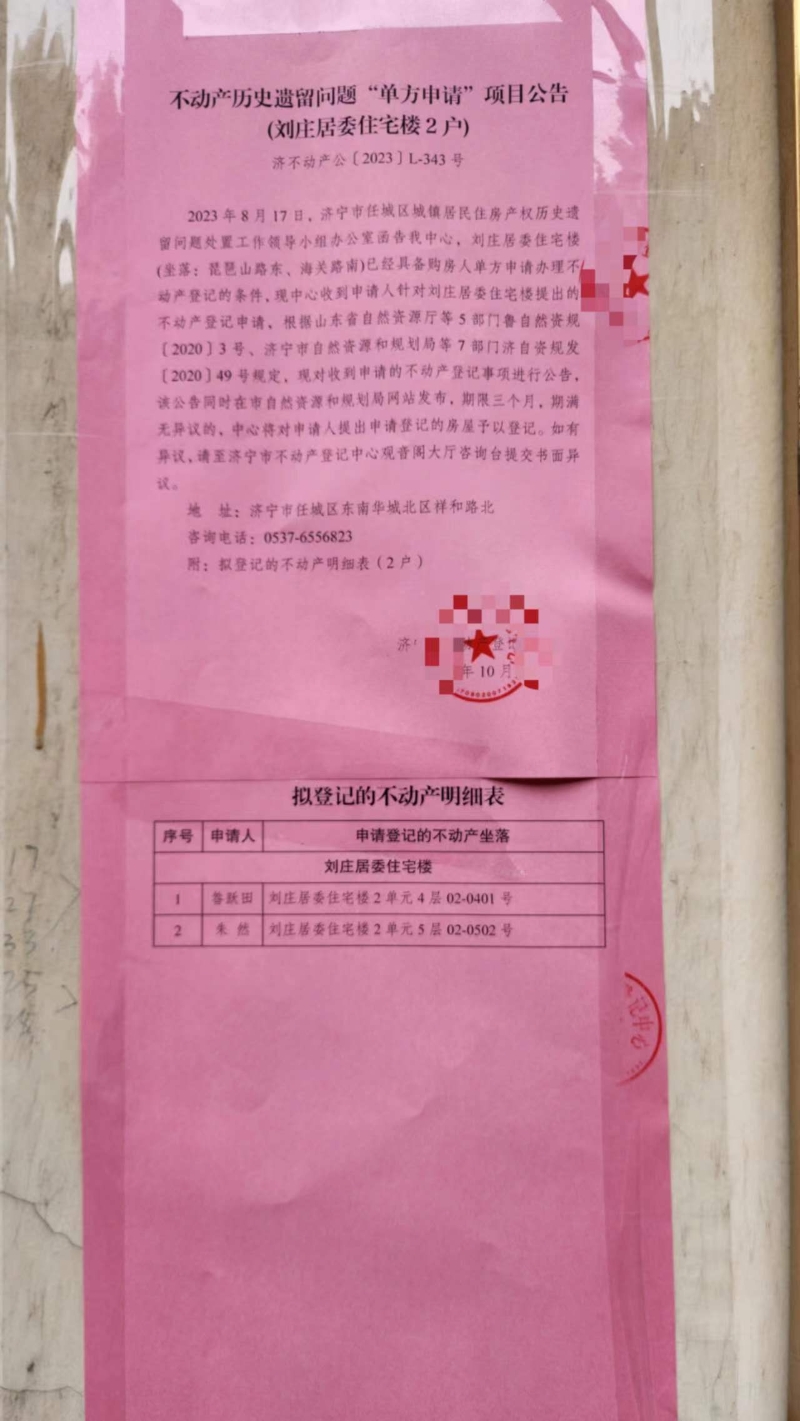 不动产历史遗留问题“单方申请”项目公告
(刘庄居委住宅楼2户)
济不动产公〔2023〕L-343号
2023年8月17日，济宁市任城区城镇居民住房产权历史遗
留问题处置工作领导小组办公室函告我中心，刘庄居委住宅楼
(坐落：琵琶山路东、海关路南)已经具备购房人单方申请办理不
动产登记的条件，现中心收到申请人针对刘庄居委住宅楼提出的
不动产登记申请，根据山东省自然资源厅等5部门鲁自然资规
〔2020〕3号、济宁市自然资源和规划局等7部门济自资规发
〔2020〕49号规定，现对收到申请的不动产登记事项进行公告，
该公告同时在市自然资源和规划局网站发布，期限三个月，期满
无异议的，中心将对申请人提出申请登记的房屋予以登记。如有
异议，请至济宁市不动产登记中心观音阁大厅咨询台提交书面异
议。
地 址：济宁市任城区东南华城北区祥和路北
咨询电话：0537-6556823
附：拟登记的不动产明细表(2户)
济
登
年10月
拟登记的不动产明细表
序号 申请人 申请登记的不动产坐落
刘庄居委住宅楼
1 鲁跃田 刘庄居委住宅楼2单元4层02-0401号
2 朱 然 刘庄居委住宅楼2单元5层02-0502号
记中心